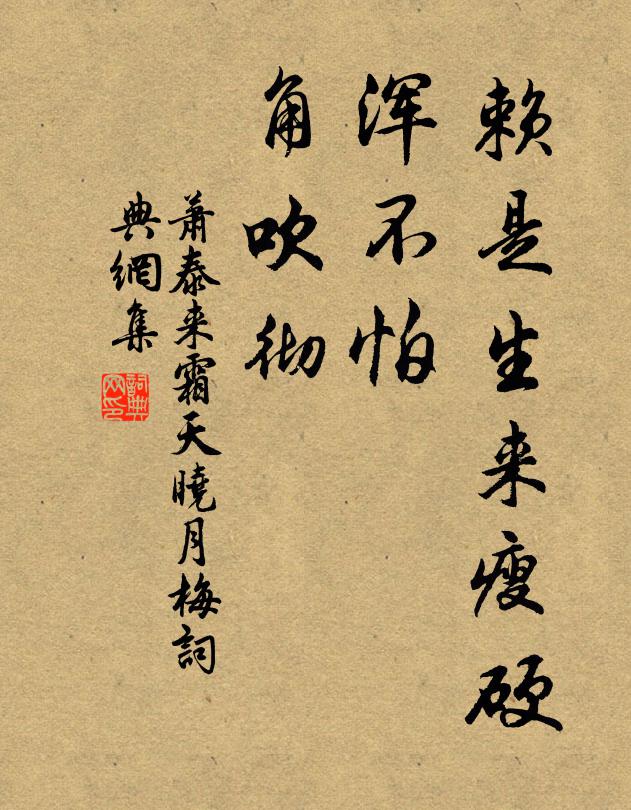 赖是生来瘦硬
浑不怕
角吹彻
萧泰来霜天曉月梅詞
典網集
詞典网印